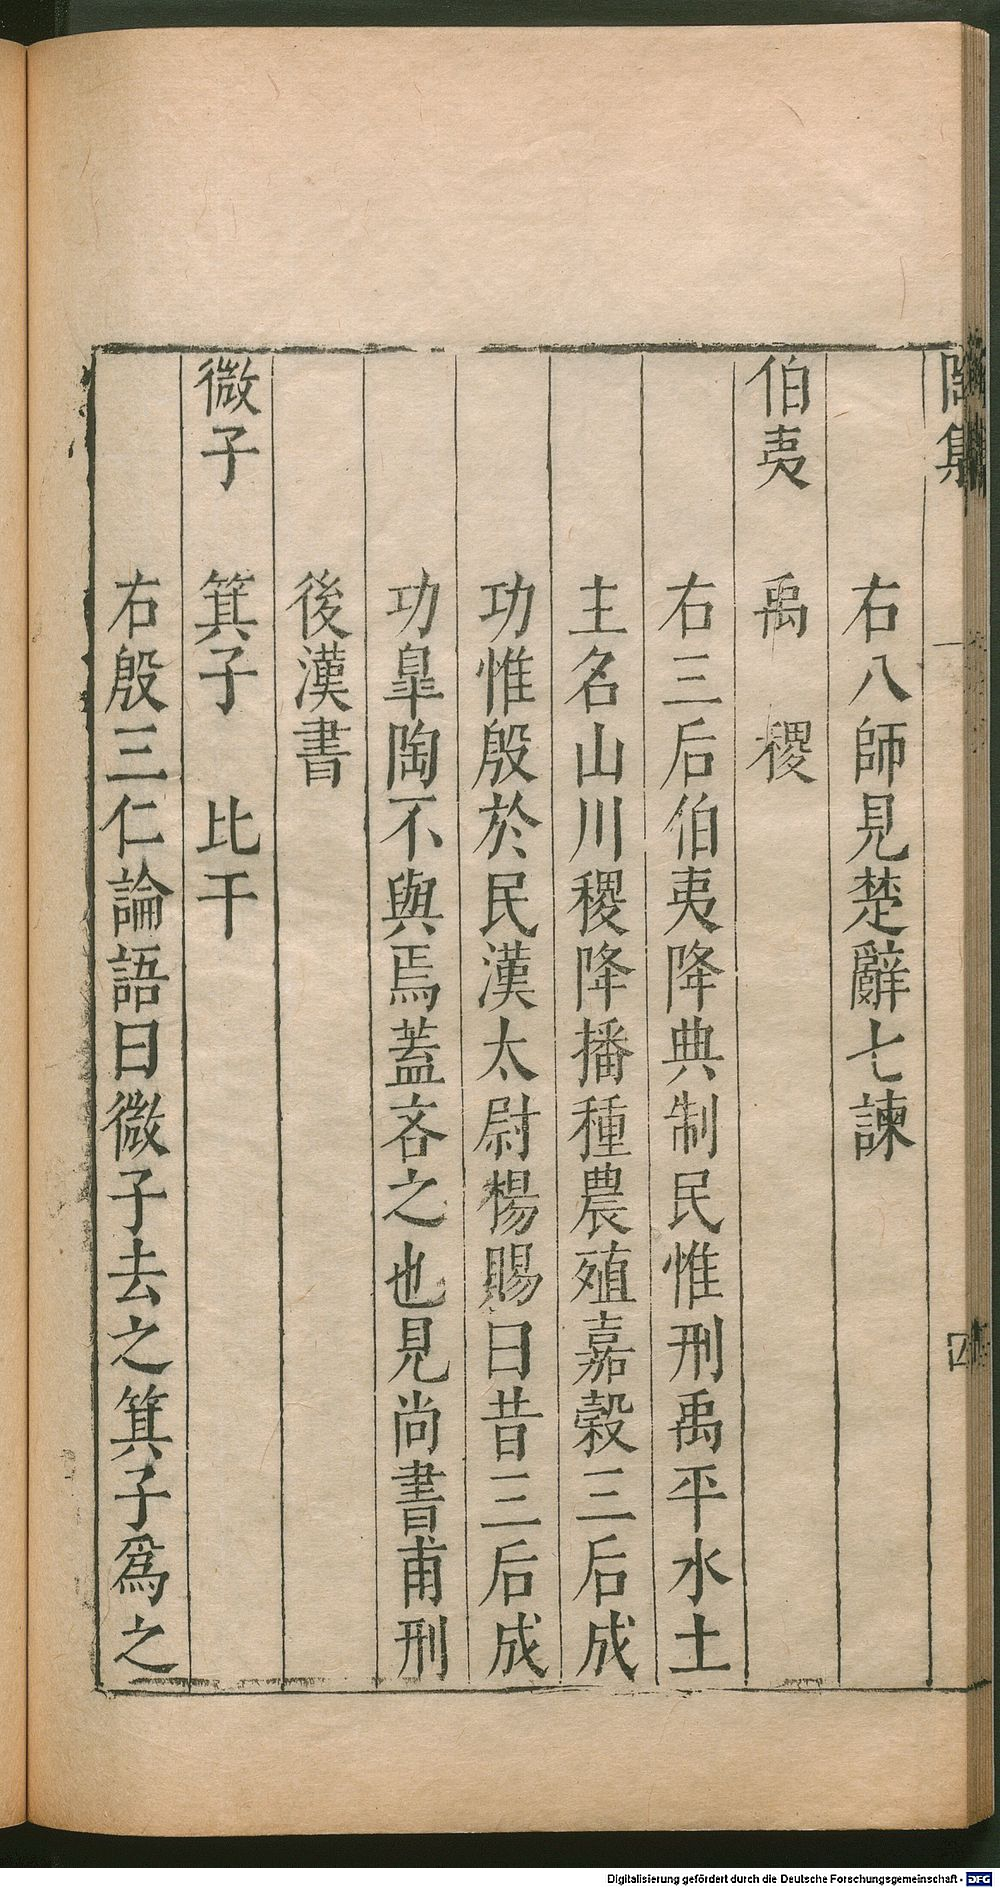 陶集
四
右八師見楚辭七諫
伯夷　禹　稷
右三后伯夷降典制民惟刑禹平水土
主名山川稷降播種農殖嘉穀三后成
功惟殷於民漢太尉楊賜曰昔三后成
功臯陶不與焉蓋吝之也見尚書甫刑
後漢書
微子　箕子　比干
右殷三仁論語曰微子去之箕子爲之
Digitalisierung gefördert durch die Deutsche Forschungsgemeinschaft - DFG